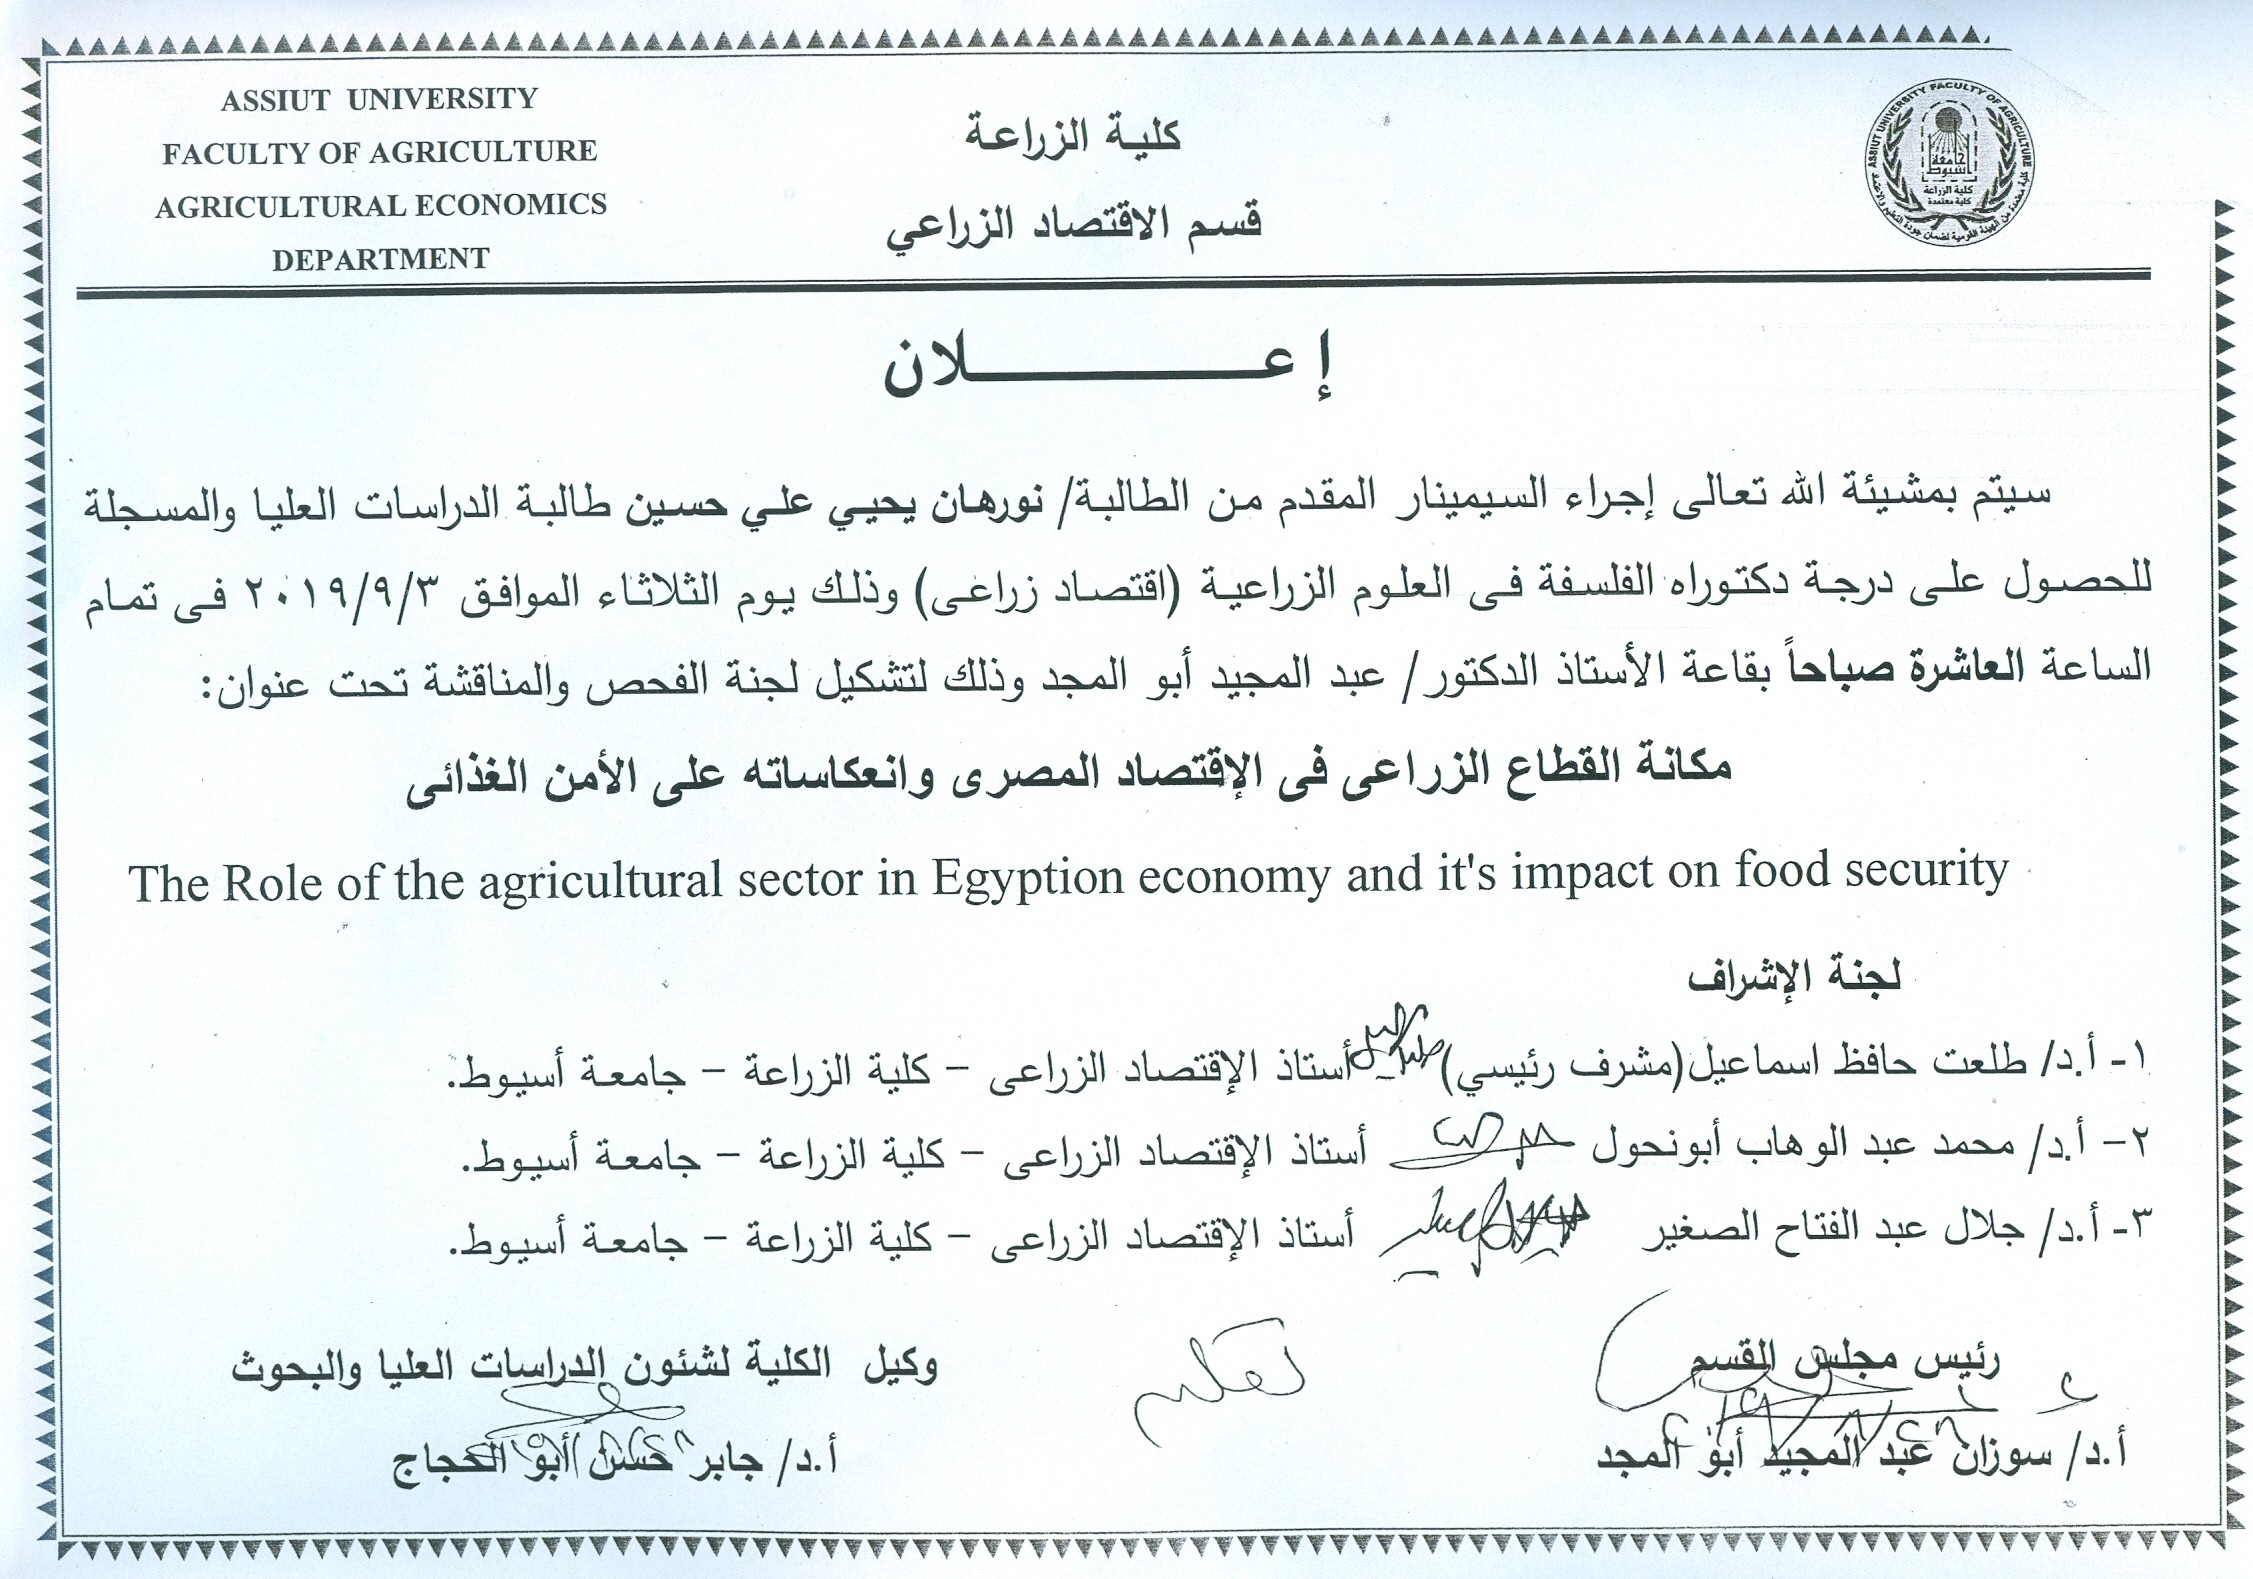 ASSIUT UNIVERSITY
FACULTY OF AGRICULTURE
AGRICULTURAL ECONOMICS
DEPARTMENT
كلية الزراعة
قسم الاقتصاد الزراعي
ASSIUT UNIVERSITY FACULTY OF AGRICULTURE
جامعة
أسيوط
كلية الزراعة
كلية معتمدة
كلية معتمدة من الهيئة القومية لضمان جودة التعليم والاعتماد
إعـــــــــلان
سيتم بمشيئة الله تعالى إجراء السيمينار المقدم من الطالبة/ نورهان يحيي علي حسين طالبة الدراسات العليا والمسجلة
للحصول على درجة دكتوراه الفلسفة فى العلوم الزراعية (اقتصاد زراعى) وذلك يوم الثلاثاء الموافق ٢٠١٩/٩/٣ فى تمام
الساعة العاشرة صباحاً بقاعة الأستاذ الدكتور/ عبد المجيد أبو المجد وذلك لتشكيل لجنة الفحص والمناقشة تحت عنوان:
مكانة القطاع الزراعى فى الإقتصاد المصرى وانعكاساته على الأمن الغذائى
The Role of the agricultural sector in Egyption economy and it's impact on food security
لجنة الإشراف
١- أ.د/ طلعت حافظ اسماعيل(مشرف رئيسي) أستاذ الإقتصاد الزراعى – كلية الزراعة – جامعة أسيوط.
٢– أ.د/ محمد عبد الوهاب أبونحول أستاذ الإقتصاد الزراعى – كلية الزراعة – جامعة أسيوط.
٣- أ.د/ جلال عبد الفتاح الصغير أستاذ الإقتصاد الزراعى – كلية الزراعة – جامعة أسيوط.
رئيس مجلس القسم
أ.د/ سوزان عبد المجيد أبو المجد
وكيل الكلية لشئون الدراسات العليا والبحوث
أ.د/ جابر حسن أبو الحجاج